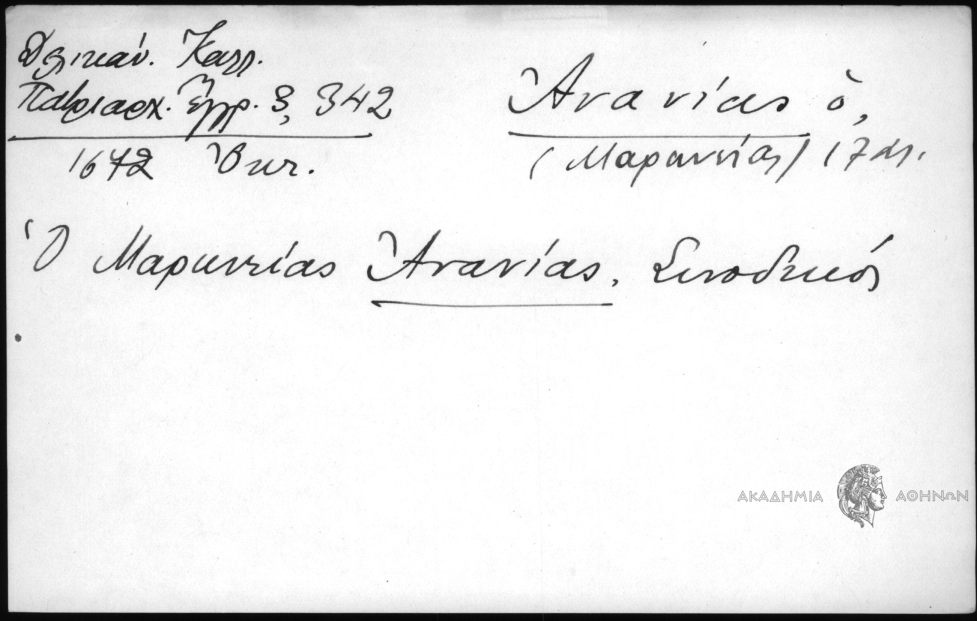 Δελικάν. Καλλ.
Πατριαρχ. Ἔγγρ. 3, 342
1672
Ἀνανίας ὁ,
(Μαρωνείας) 17 αι.
Ὁ Μαρωνείας Ἀνανίας. Συνοδικός
ΑΚΑΔΗΜΙΑ ΑΘΗΝΩΝ